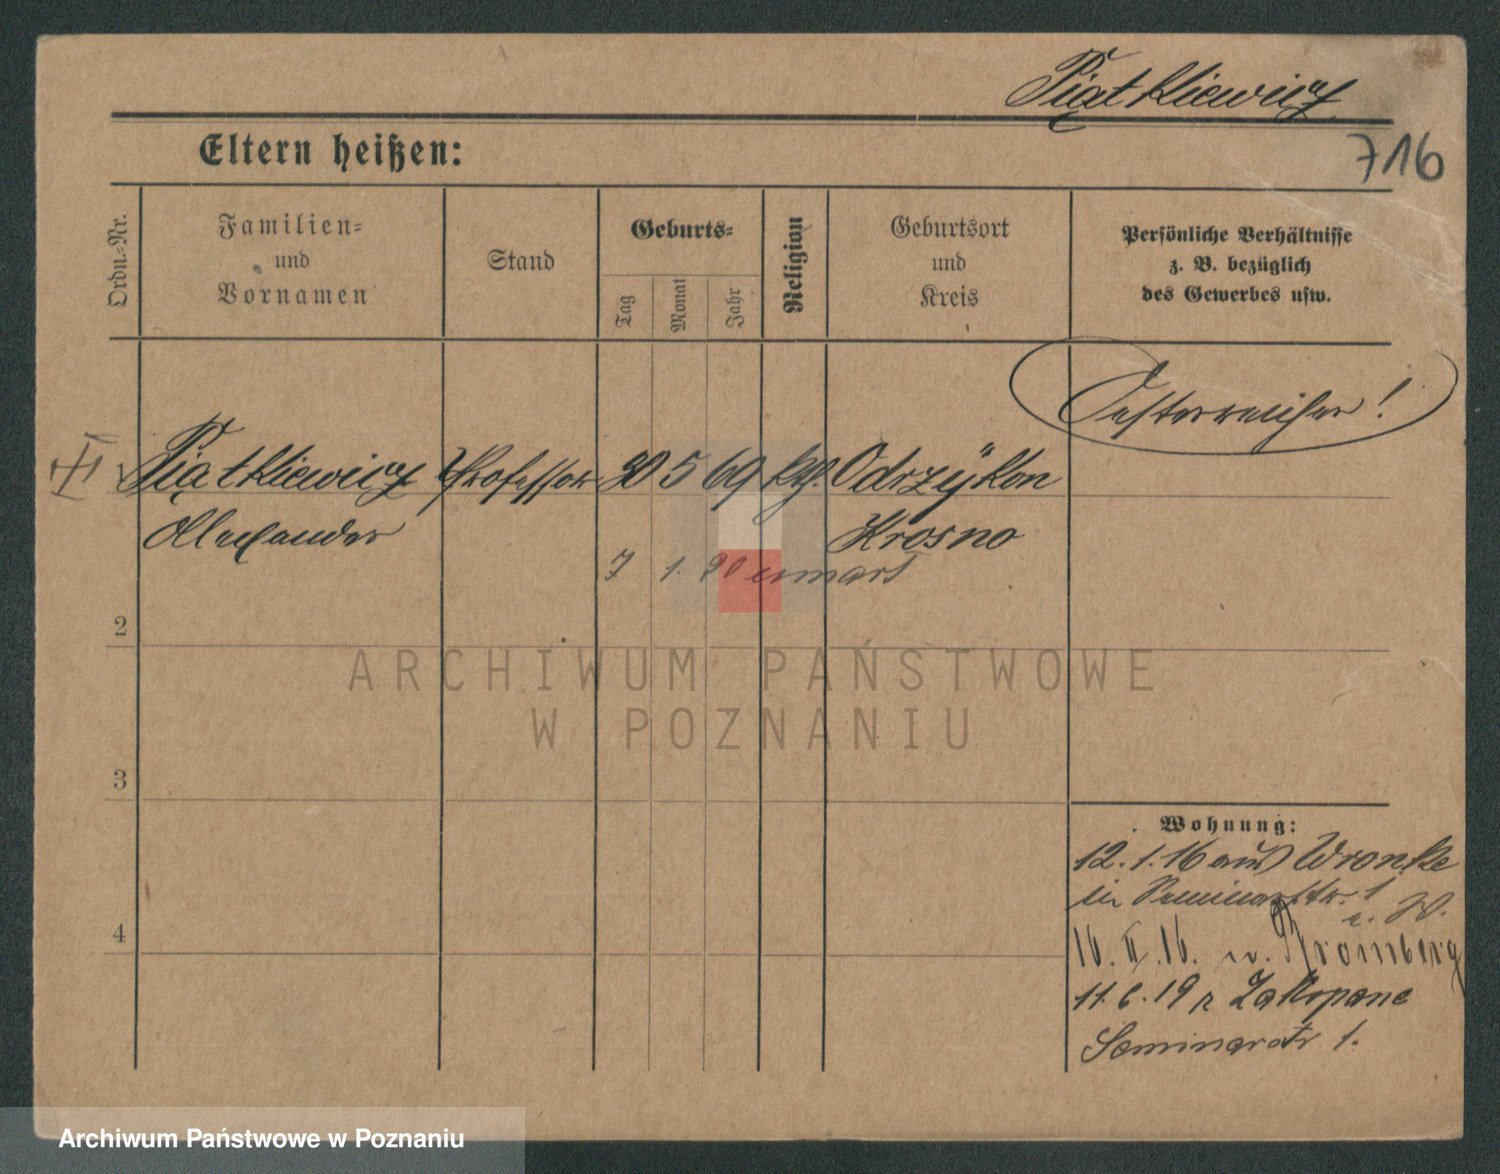 Piątkiewicz
716
Eltern heißen:
Ordn.-Nr.
Familien-
und
Vornamen
Stand
Geburts-
Tag
Monat
Jahr
Religion
Geburtsort
und
Kreis
Persönliche Verhältnisse
z. B. bezüglich
des Gewerbes usw.
Oesterreicher!
Piątkiewicz Professor 30 5 69 kth. Odrzykon
Alexander Krosno
7 1. 20 umarł
2
3
4
ARCHIWUM PAŃSTWOWE
W POZNANIU
Wohnung:
12.1.16 aus Wronke
Seminarstr. 1
16.II.16. n. Bromberg
11.6.19 z Zakopane
Seminarstr 1.
Archiwum Państwowe w Poznaniu